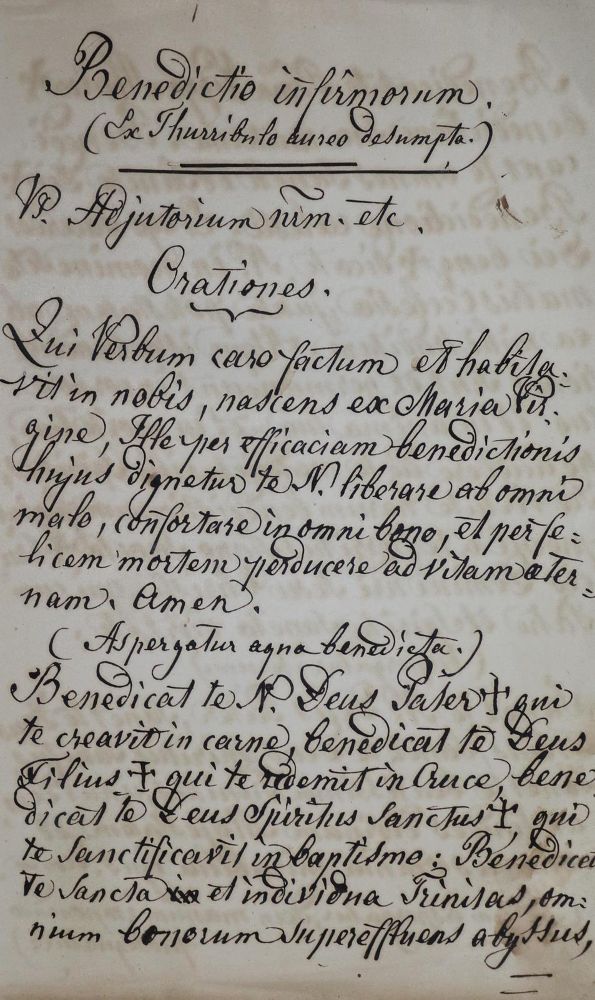 Benedictio infirmorum.
(Ex Thurribulo aureo desumpta.)
V. Adjutorium nrm. etc.
Orationes.
Qui Verbum caro factum et habita-
vit in nobis, nascens ex Maria Vir-
gine, Ille per efficaciam benedictionis
hujus dignetur te N. liberare ab omni
malo, confortare in omni bono, et per fe=
licem mortem perducere ad vitam æter=
nam. Amen.
(Aspergatur aqua benedicta.)
Benedicat te N. Deus Pater ✝ qui
te creavit in carne, benedicat te Deus
Filius ✝ qui te redemit in Cruce, bene
dicat te Deus Spiritus Sanctus ✝, qui
te Sanctificavit in baptismo: Benedicat
te Sancta et individua Trinitas, om=
nium bonorum supereffluens abyssus,